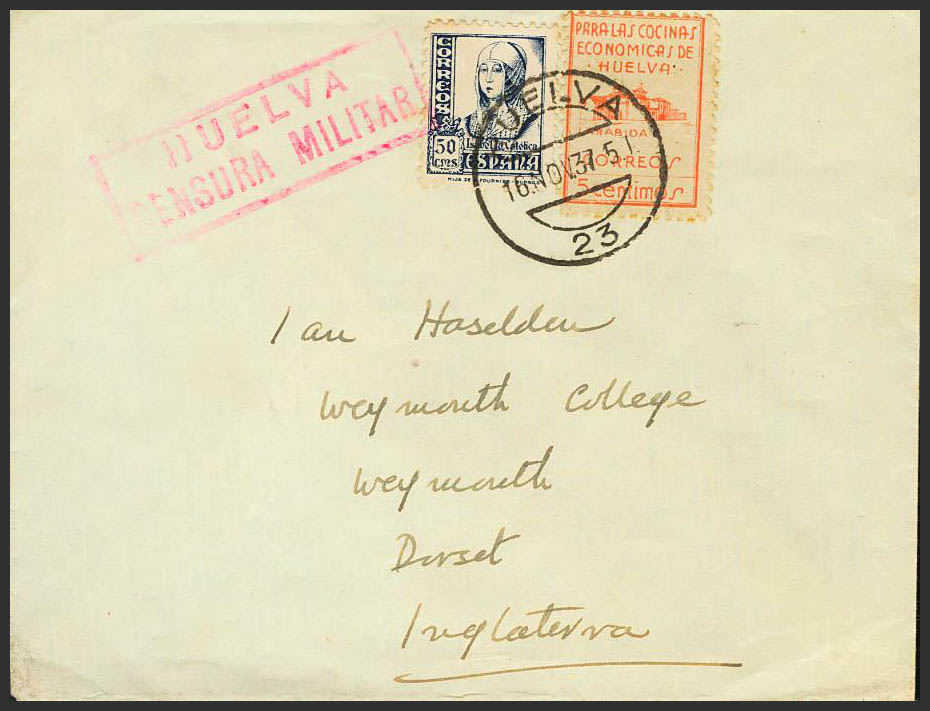 HUELVA
CENSURA MILITAR
CORREOS
50
CTMS
Isabel la Católica
ESPAÑA
HIJA DE B. FOURNIER
PARA LAS COCINAS
ECONOMICAS DE
·HUELVA·
RABIDA
CORREOS
5 centimos
HUELVA
16.NOV.37-5
23
Ian Haselden
Weymouth College
Weymouth
Dorset
Inglaterra